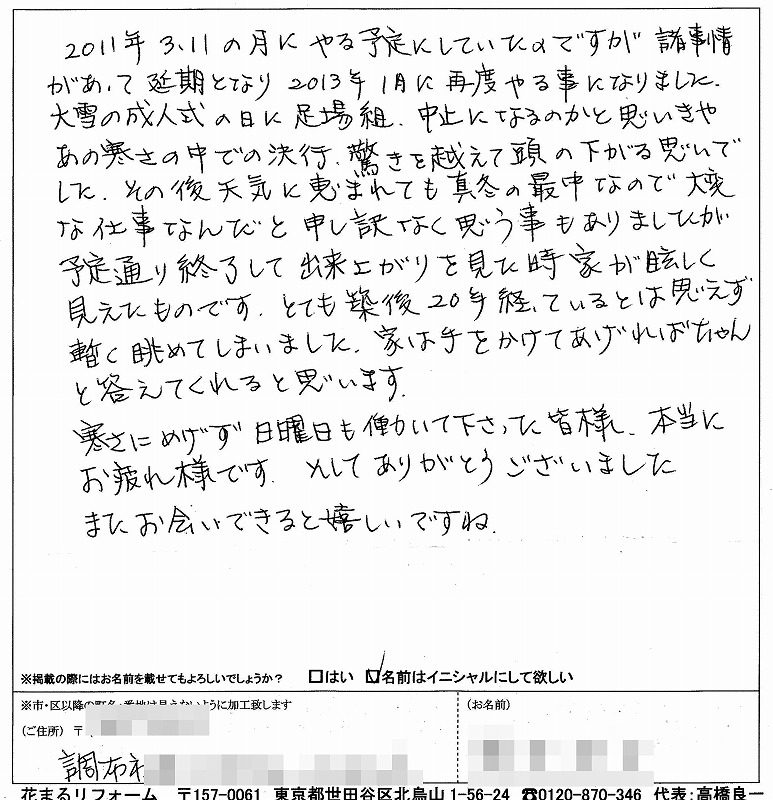 2011年 3.11 の月に やる予定にしていたのですが 諸事情
があって 延期となり 2013年 1月に 再度やる事になりました.
大雪の成人式の日に 足場組. 中止になるのかと思いきや
あの寒さの中での決行. 驚きを越えて頭の下がる思いで
した. その後天気に恵まれても真冬の最中なので大変
な仕事なんだと 申し訳なく思う事もありましたが
予定通り終了して 出来上がりを見た時 家が眩しく
見えたものです. とても築後20年経っているとは思えず
暫く眺めてしまいました. 家は手をかけてあげればちゃん
と答えてくれると思います.
寒さにめげず 日曜日も働いて下さった皆様、本当に
お疲れ様です. そしてありがとうございました
またお会いできると嬉しいですね.
※掲載の際にはお名前を載せてもよろしいでしょうか？ □はい ☑名前はイニシャルにして欲しい
※市・区以降の町名・番地は見えないように加工致します (お名前)
(ご住所) 〒
調布市
花まるリフォーム 〒157-0061 東京都世田谷区北烏山1-56-24 ☎0120-870-346 代表：高橋良一